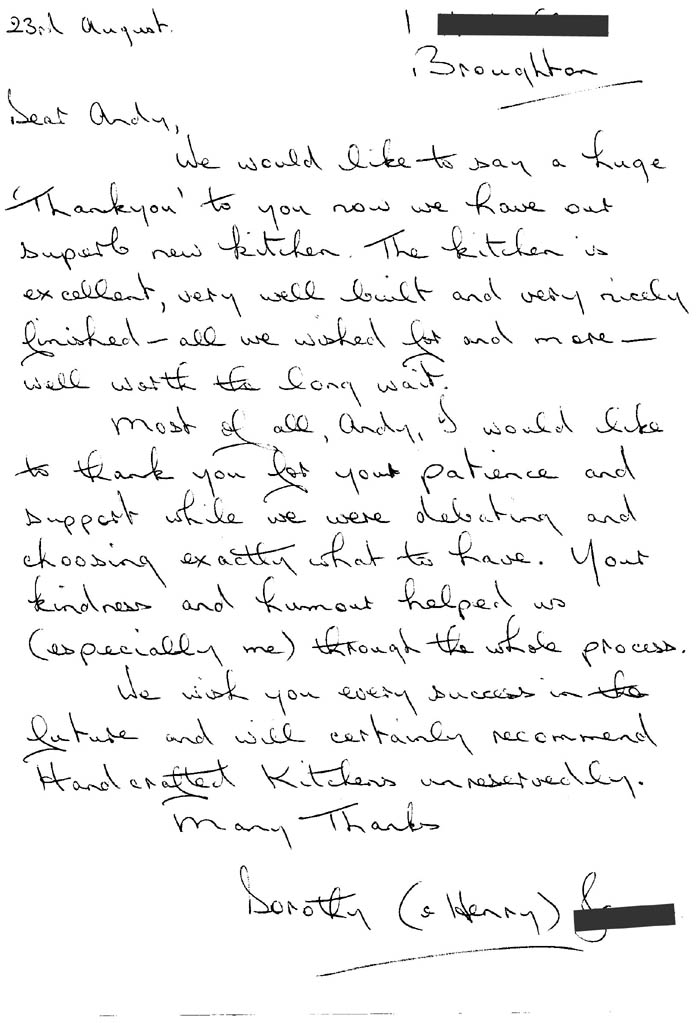 23rd August.
1
Broughton
Dear Andy,
We would like to say a huge
'Thankyou' to you now we have our
superb new kitchen. The kitchen is
excellent, very well built and very nicely
finished - all we wished for and more -
well worth the long wait.
Most of all, Andy, I would like
to thank you for your patience and
support while we were debating and
choosing exactly what to have. Your
kindness and humour helped us
(especially me) through the whole process.
We wish you every success in the
future and will certainly recommend
Handcrafted Kitchens unreservedly.
Many Thanks
Dorothy (& Henry)